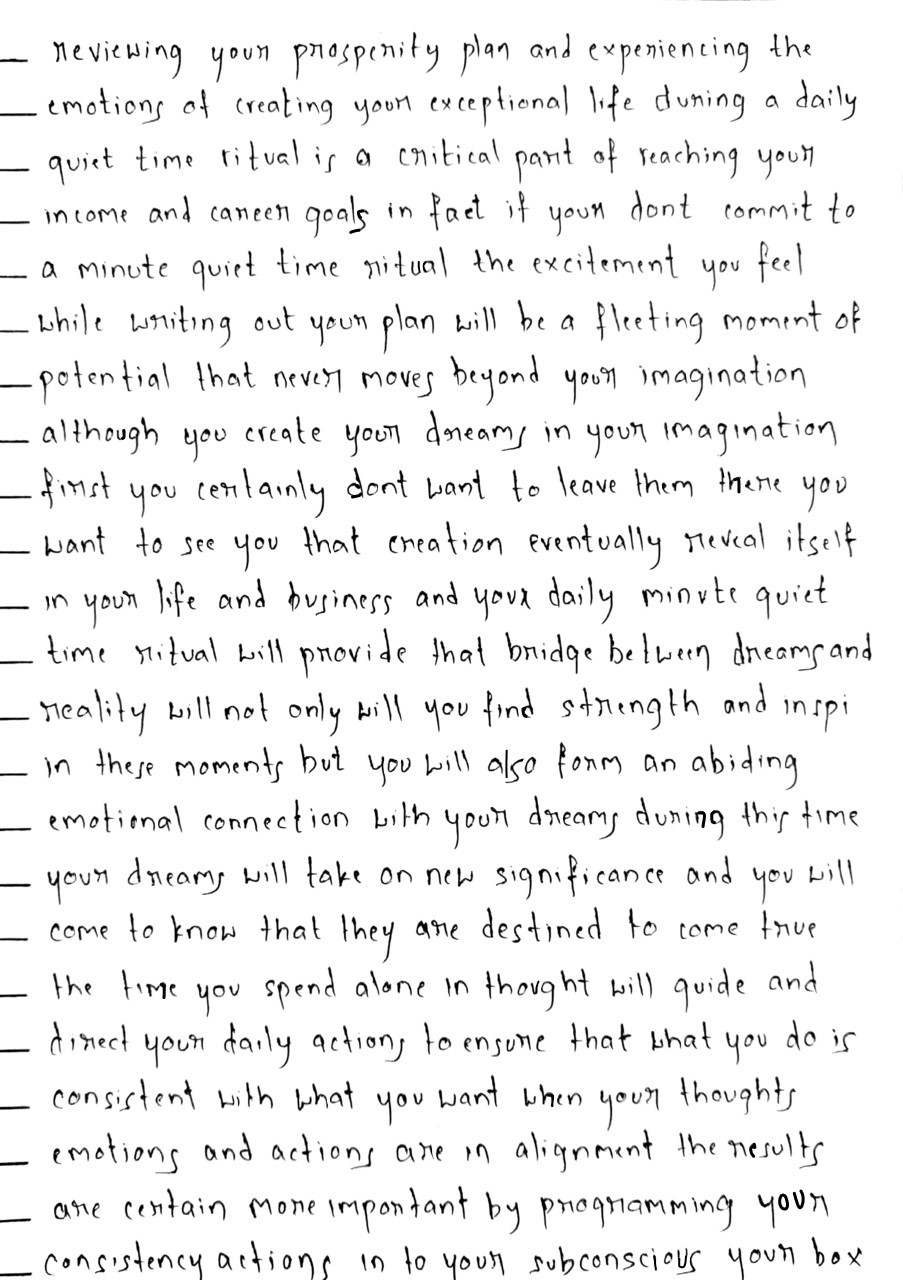 reviewing your prosperity plan and experiencing the
emotions of creating your exceptional life during a daily
quiet time ritual is a critical part of reaching your
income and career goals in fact if your dont commit to
a minute quiet time ritual the excitement you feel
while writing out your plan will be a fleeting moment of
potential that never moves beyond your imagination
although you create your dreams in your imagination
first you certainly dont want to leave them there you
want to see you that creation eventually reveal itself
in your life and business and your daily minute quiet
time ritual will provide that bridge between dreams and
reality will not only will you find strength and inspi
in these moments but you will also form an abiding
emotional connection with your dreams during this time
your dreams will take on new significance and you will
come to know that they are destined to come true
the time you spend alone in thought will guide and
direct your daily actions to ensure that what you do is
consistent with what you want when your thoughts
emotions and actions are in alignment the results
are certain more important by programming your
consistency actions in to your subconscious your box